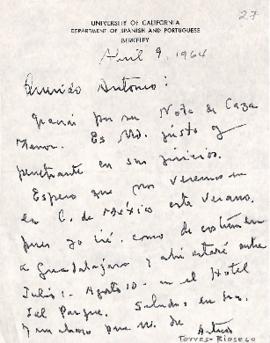 27
UNIVERSITY OF CALIFORNIA
DEPARTMENT OF SPANISH AND PORTUGUESE
BERKELEY
Abril 9, 1964
Querido Antonio:
Gracias por su Nota de Caza
Menor. Es Ud. justo y
penetrante en sus juicios.
Espero que nos veremos
en C. de México este verano.
Pues yo iré como de costumbre
a Guadalajara y ahí estaré entre
Julio 1 - Agosto 10 - en el Hotel
del Parque. Saludos
y un abrazo para Ud. de Arturo
Torres-Rioseco